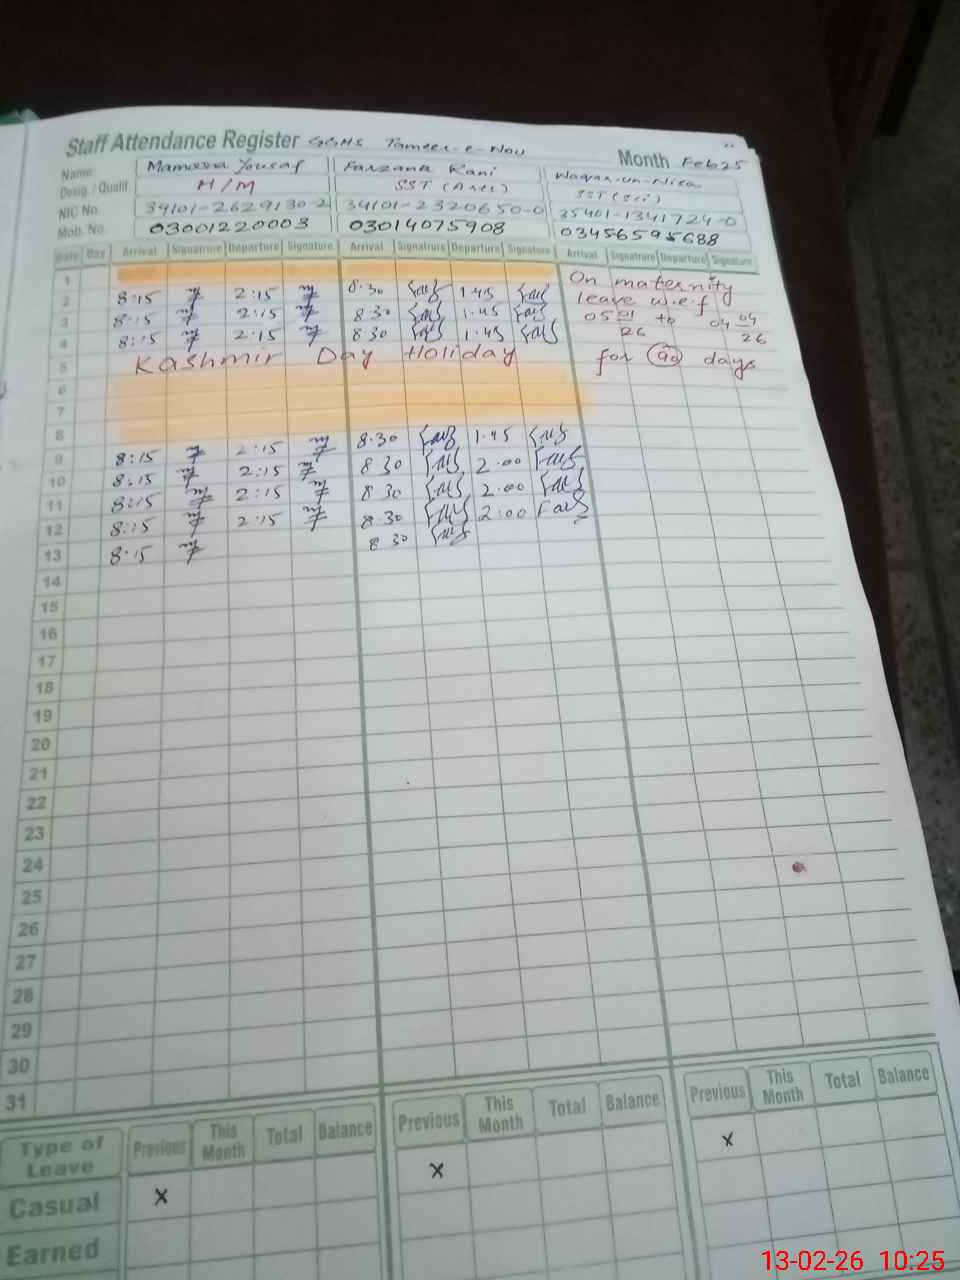 Staff Attendance Register GGHS Tameer-e-Nau Month Feb 25
Name: Mamoona Yousaf Farzana Rani Waqar-un-Nisa
Desig. / Qualif. H/M SST (Arts) SST (Sci)
NIC No. 34101-2629130-2 34101-2320650-0 35401-1341724-0
Mob. No. 03001220003 03014075908 03456595688
Date Day Arrival Signatrure Departure Signature Arrival Signatrure Departure Signature Arrival Signatrure Departure Signature
1 On maternity
2 8:15 2:15 8.30 1.45 leave w.e.f
3 8:15 2:15 8.30 1.45 05 01/26 to 04 04/26
4 8:15 2:15 8 30 1.45
5 Kashmir Day Holiday for 90 days
6
7
8
9 8:15 2:15 8.30 1.45
10 8:15 2:15 8 30 2.00
11 8:15 2:15 8 30 2.00
12 8:15 2:15 8.30 2:00
13 8:15 8 30
14
15
16
17
18
19
20
21
22
23
24
25
26
27
28
29
30
31
Type of Leave Previous This Month Total Balance Previous This Month Total Balance Previous This Month Total Balance
Casual x x x
Earned
13-02-26 10:25